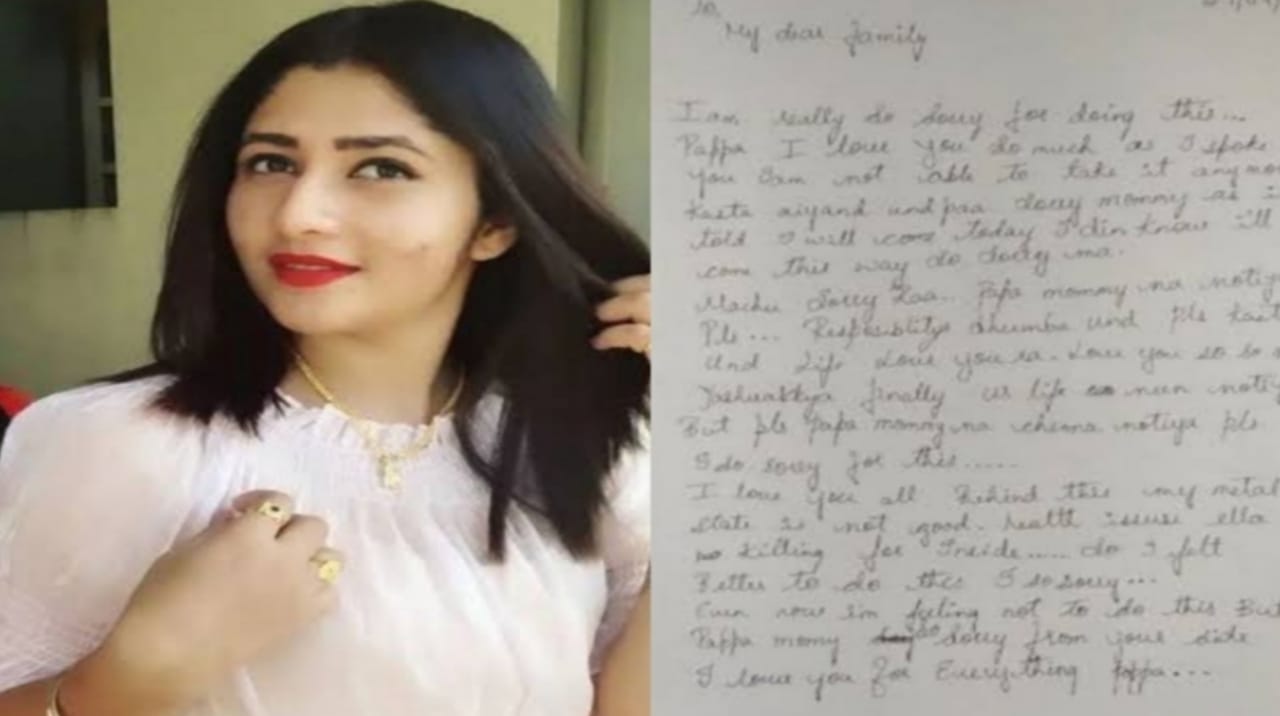 to,
My dear family
I am really so sorry for doing this...
Pappa I love you so much as I spoke
you I am not able to take it anymo
Kasta aiyand und paa sorry mommy as i
told I will come today I din know i'll
come this way so sorry ma.
Machu Sorry Laa.. Papa mommy na notiy
Pls... Resposiblitys dhumba und pls kast
und life Love you ra. Love you so so
finally us life neen noti
But pls papa mommy na chenna notiya pls
I so sorry for this.....
I love you all Behind this my metal
state is not good. health issuse ella
killing for Inside..... so I felt
Better to do this I so sorry...
Even now I'm feeling not to do this But
Pappa momy so Sorry from your side
I love you for Everything pappa...